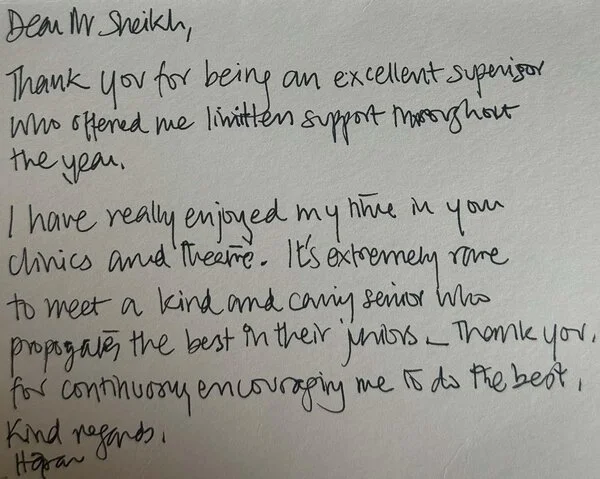 Dear Mr Sheikh,
Thank you for being an excellent supervisor
who offered me support throughout
the year.
I have really enjoyed my time in your
clinics and theatre. It's extremely rare
to meet a kind and caring senior who
propogates the best in their juniors. Thank you,
for continuously encouraging me to do the best,
Kind regards,